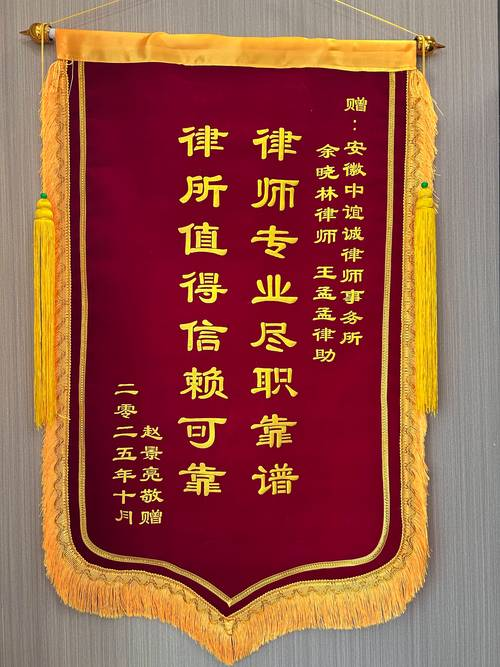 赠：安徽中谊诚律师事务所
余晓林律师 王孟孟律助
律师专业尽职靠谱
律所值得信赖可靠
赵景亮敬赠
二零二五年十月